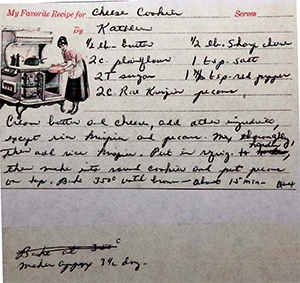 My Favorite Recipe for Cheese Cookies Serves
By Kathleen
1/2 lb. butter 1/2 lb. Sharp cheese
2c. plain flour 1 tsp. salt
2T sugar 1 1/2 tsp. red pepper
2c. Rice Krispies pecans
Cream butter and cheese, add other ingredients
except rice Krispies and pecans. Mix
then add rice Krispies. Put in
then make into round cookies and put pecans
on top. Bake 350° until brown - about 15 min -
Bake at 350°
makes approx doz.